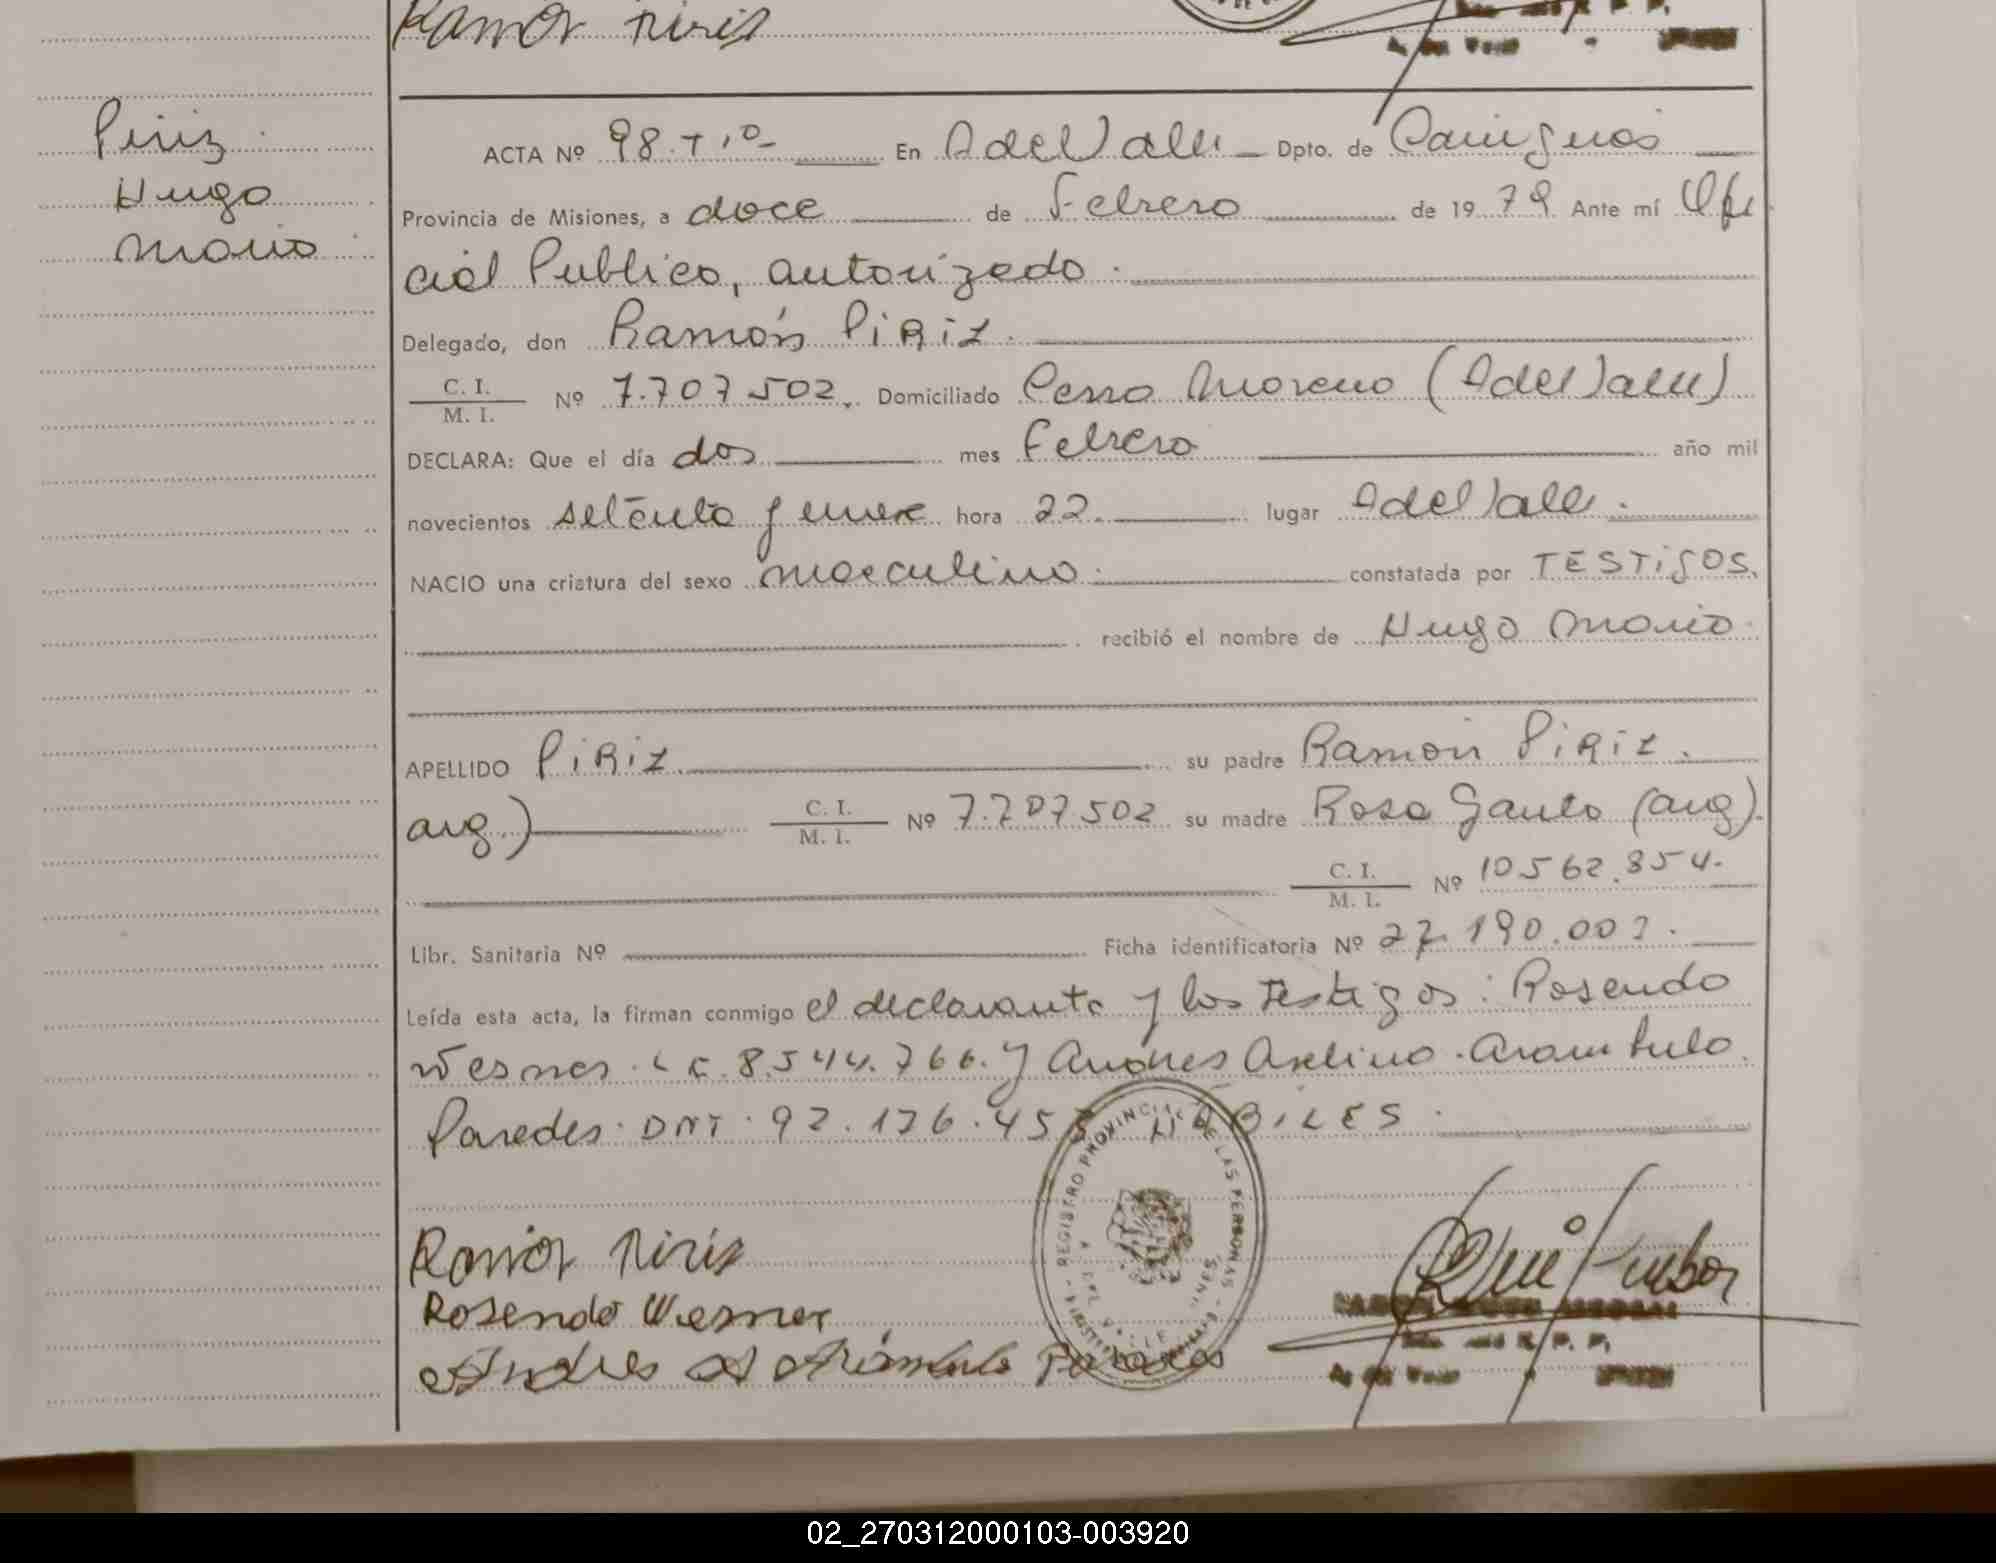 Ramón Piris
Piriz
Hugo
Mario
ACTA Nº 98. T. 1º En A del Valle Dpto. de Cainguas
Provincia de Misiones, a doce de Febrero de 1979 Ante mí Ofi
cial Publico, autorizado.
Delegado, don Ramón PiRiz.
C. I.
M. I. Nº 7.707.502. Domiciliado Cerro Moreno (A del Valle)
DECLARA: Que el día dos mes Febrero año mil
novecientos setenta y nueve hora 22. lugar A del Valle.
NACIO una criatura del sexo masculino. constatada por TESTigOS.
recibió el nombre de Hugo Mario.
APELLIDO PiRiz. su padre Ramon PiRiz.
arg.) C. I.
M. I. Nº 7.707.502 su madre Rosa (arg).
C. I.
M. I. Nº 10.562.854.
Libr. Sanitaria Nº Ficha identificatoria Nº 27.190.00
Leída esta acta, la firman conmigo el declarante y los Testigos: Rosendo
Wesner. 8.544.766. y Andres Avelino. Arambulo
Paredes. DNI. 92.126.45 HABILES.
REGISTRO PROVINCIAL DE LAS PERSONAS
Ramón Piris
Rosendo Wesner
Andres A Arámbulo Paredes
02_270312000103-003920